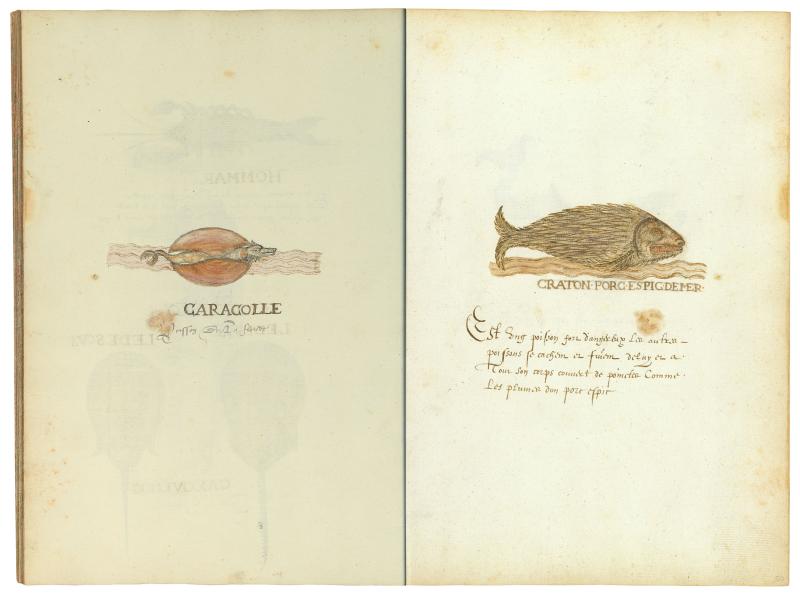 CARACOLLE
CRATON·PORC·ESPIC·DE·MER·
Est ung poisson fort dangereux les autres
poissons se cachent et fuient de luy et a
Tout son corps couvert de pointes Comme
Les plumes dun porc espic